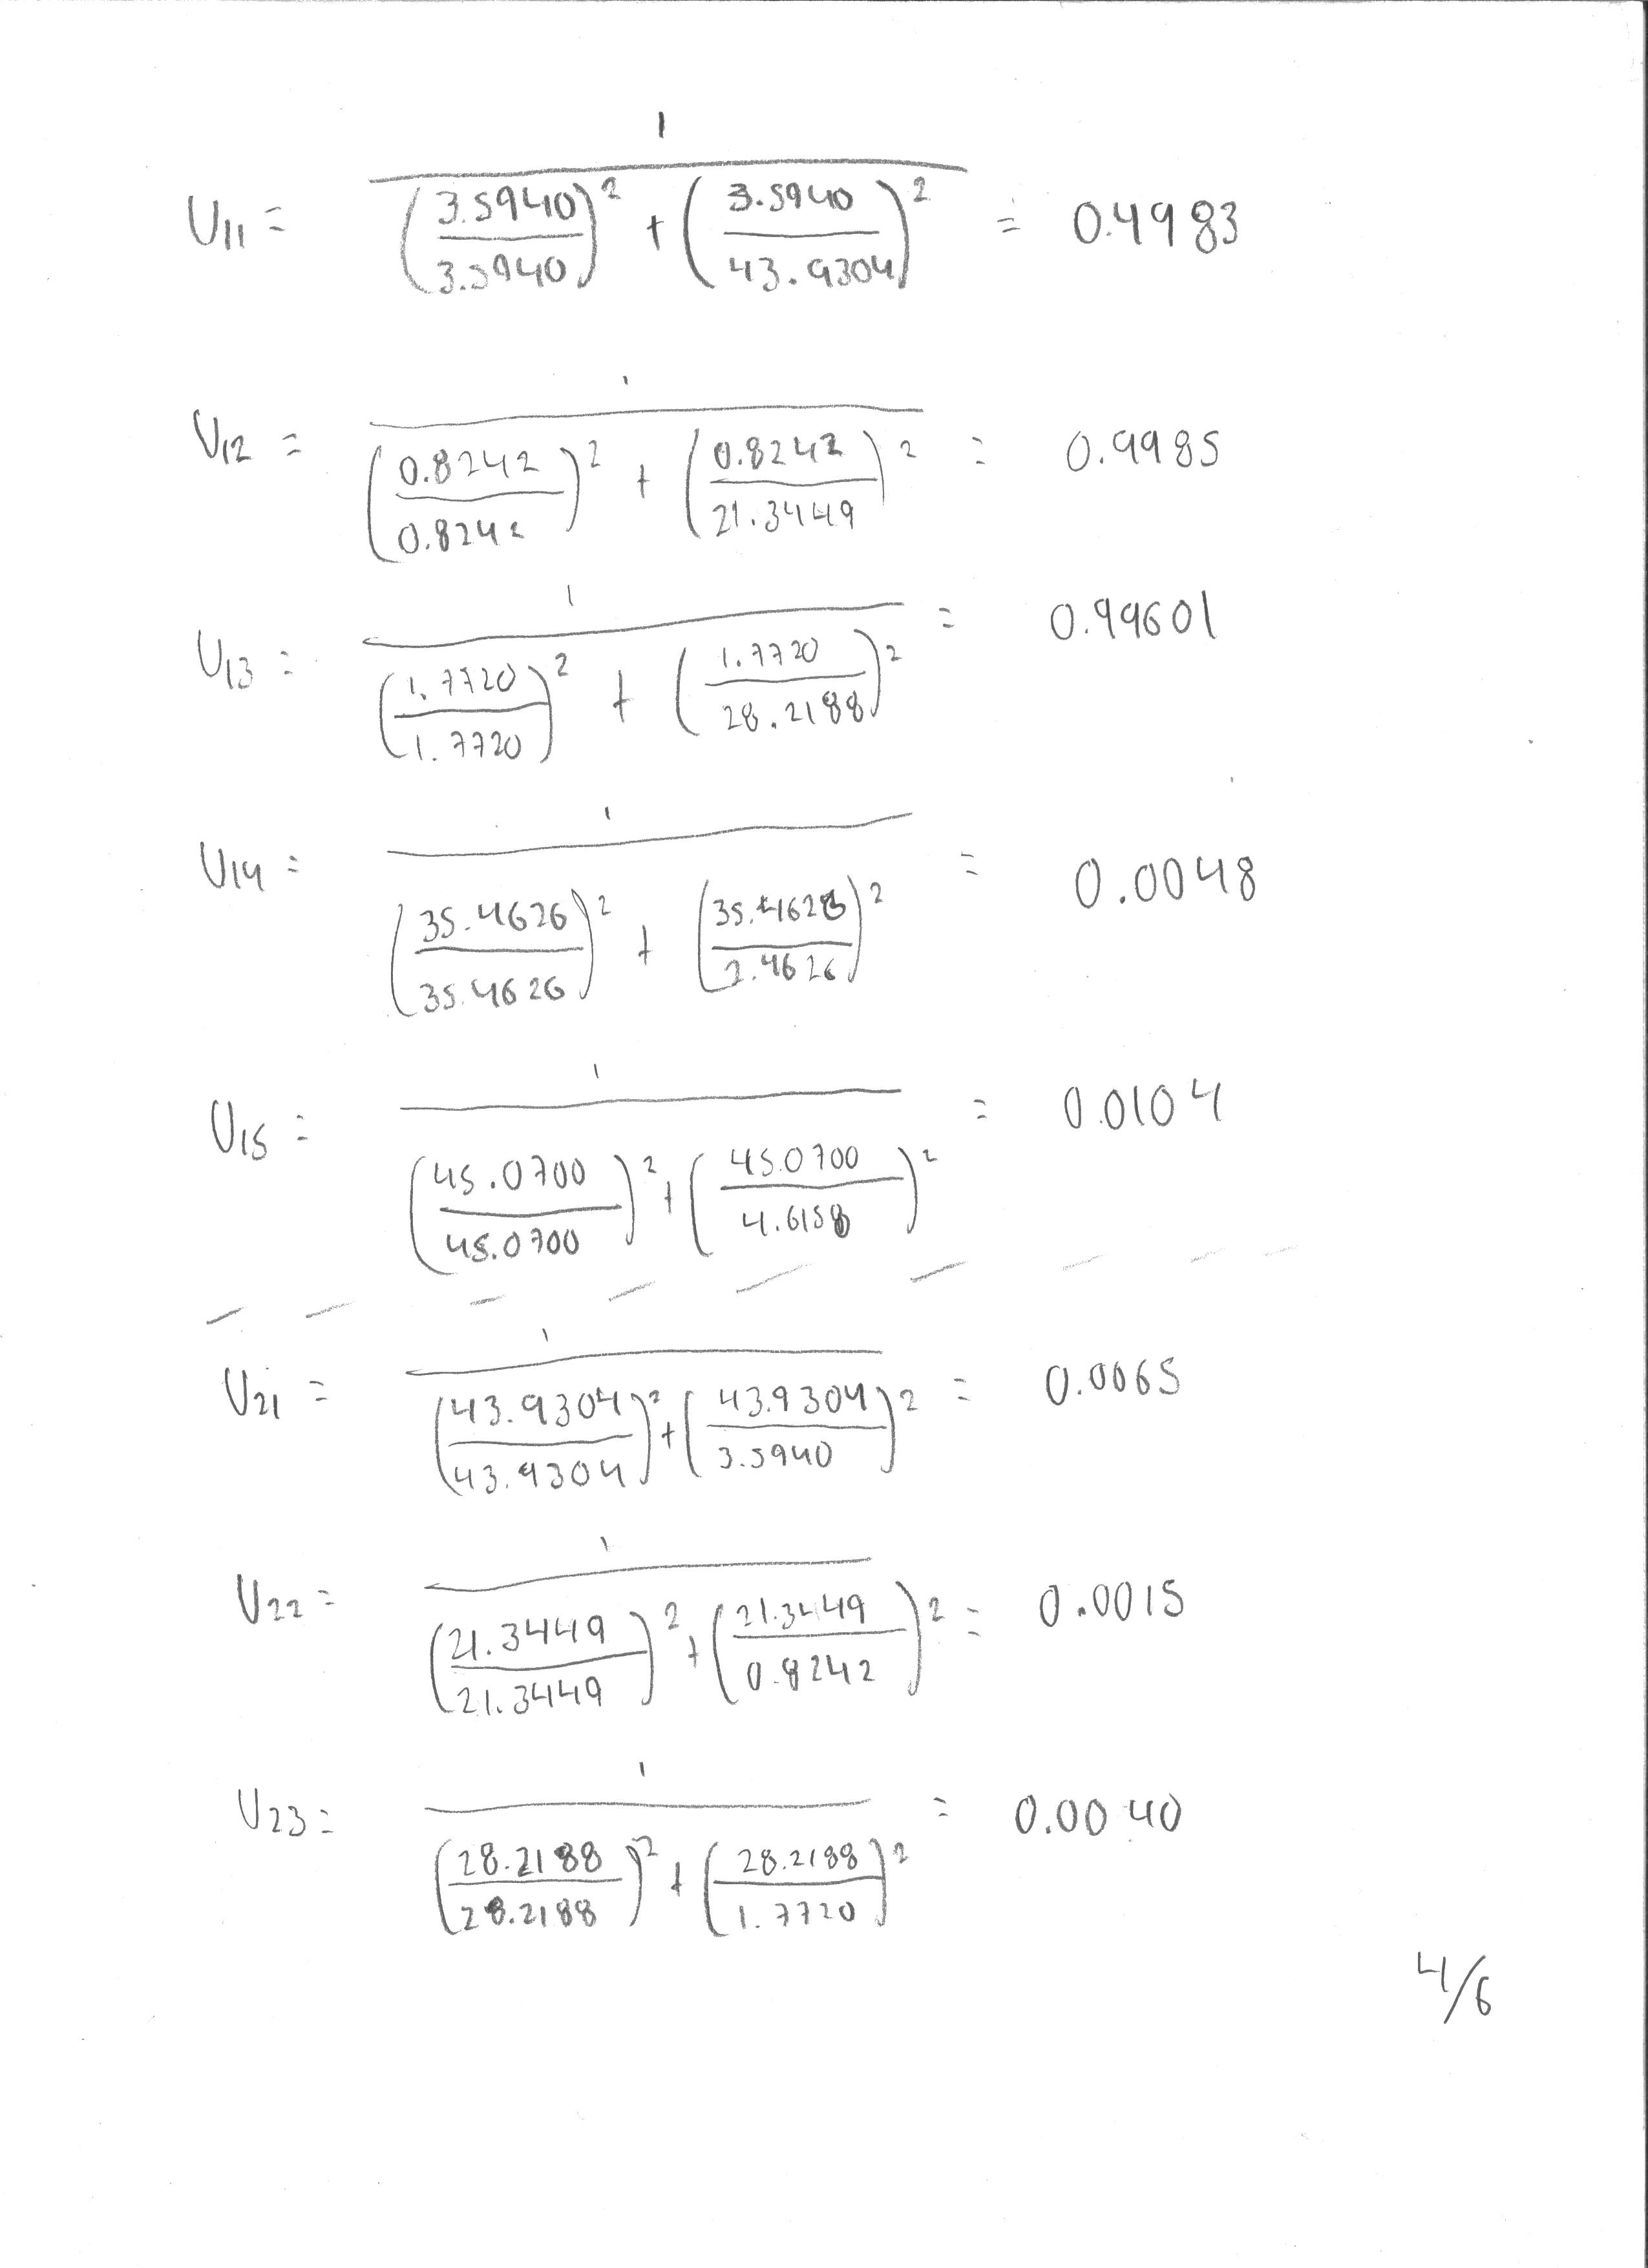 U11 = 1 / ((3.5940/3.5940)^2 + (3.5940/43.9304)^2) = 0.4983
U12 = 1 / ((0.8242/0.8242)^2 + (0.8242/21.3449)^2) = 0.9985
U13 = 1 / ((1.7720/1.7720)^2 + (1.7720/28.2188)^2) = 0.99601
U14 = 1 / ((35.4626/35.4626)^2 + (35.4626/2.4626)^2) = 0.0048
U15 = 1 / ((45.0700/45.0700)^2 + (45.0700/4.6158)^2) = 0.0104
U21 = 1 / ((43.9304/43.9304)^2 + (43.9304/3.5940)^2) = 0.0065
U22 = 1 / ((21.3449/21.3449)^2 + (21.3449/0.8242)^2) = 0.0015
U23 = 1 / ((28.2188/28.2188)^2 + (28.2188/1.7720)^2) = 0.0040
4/6